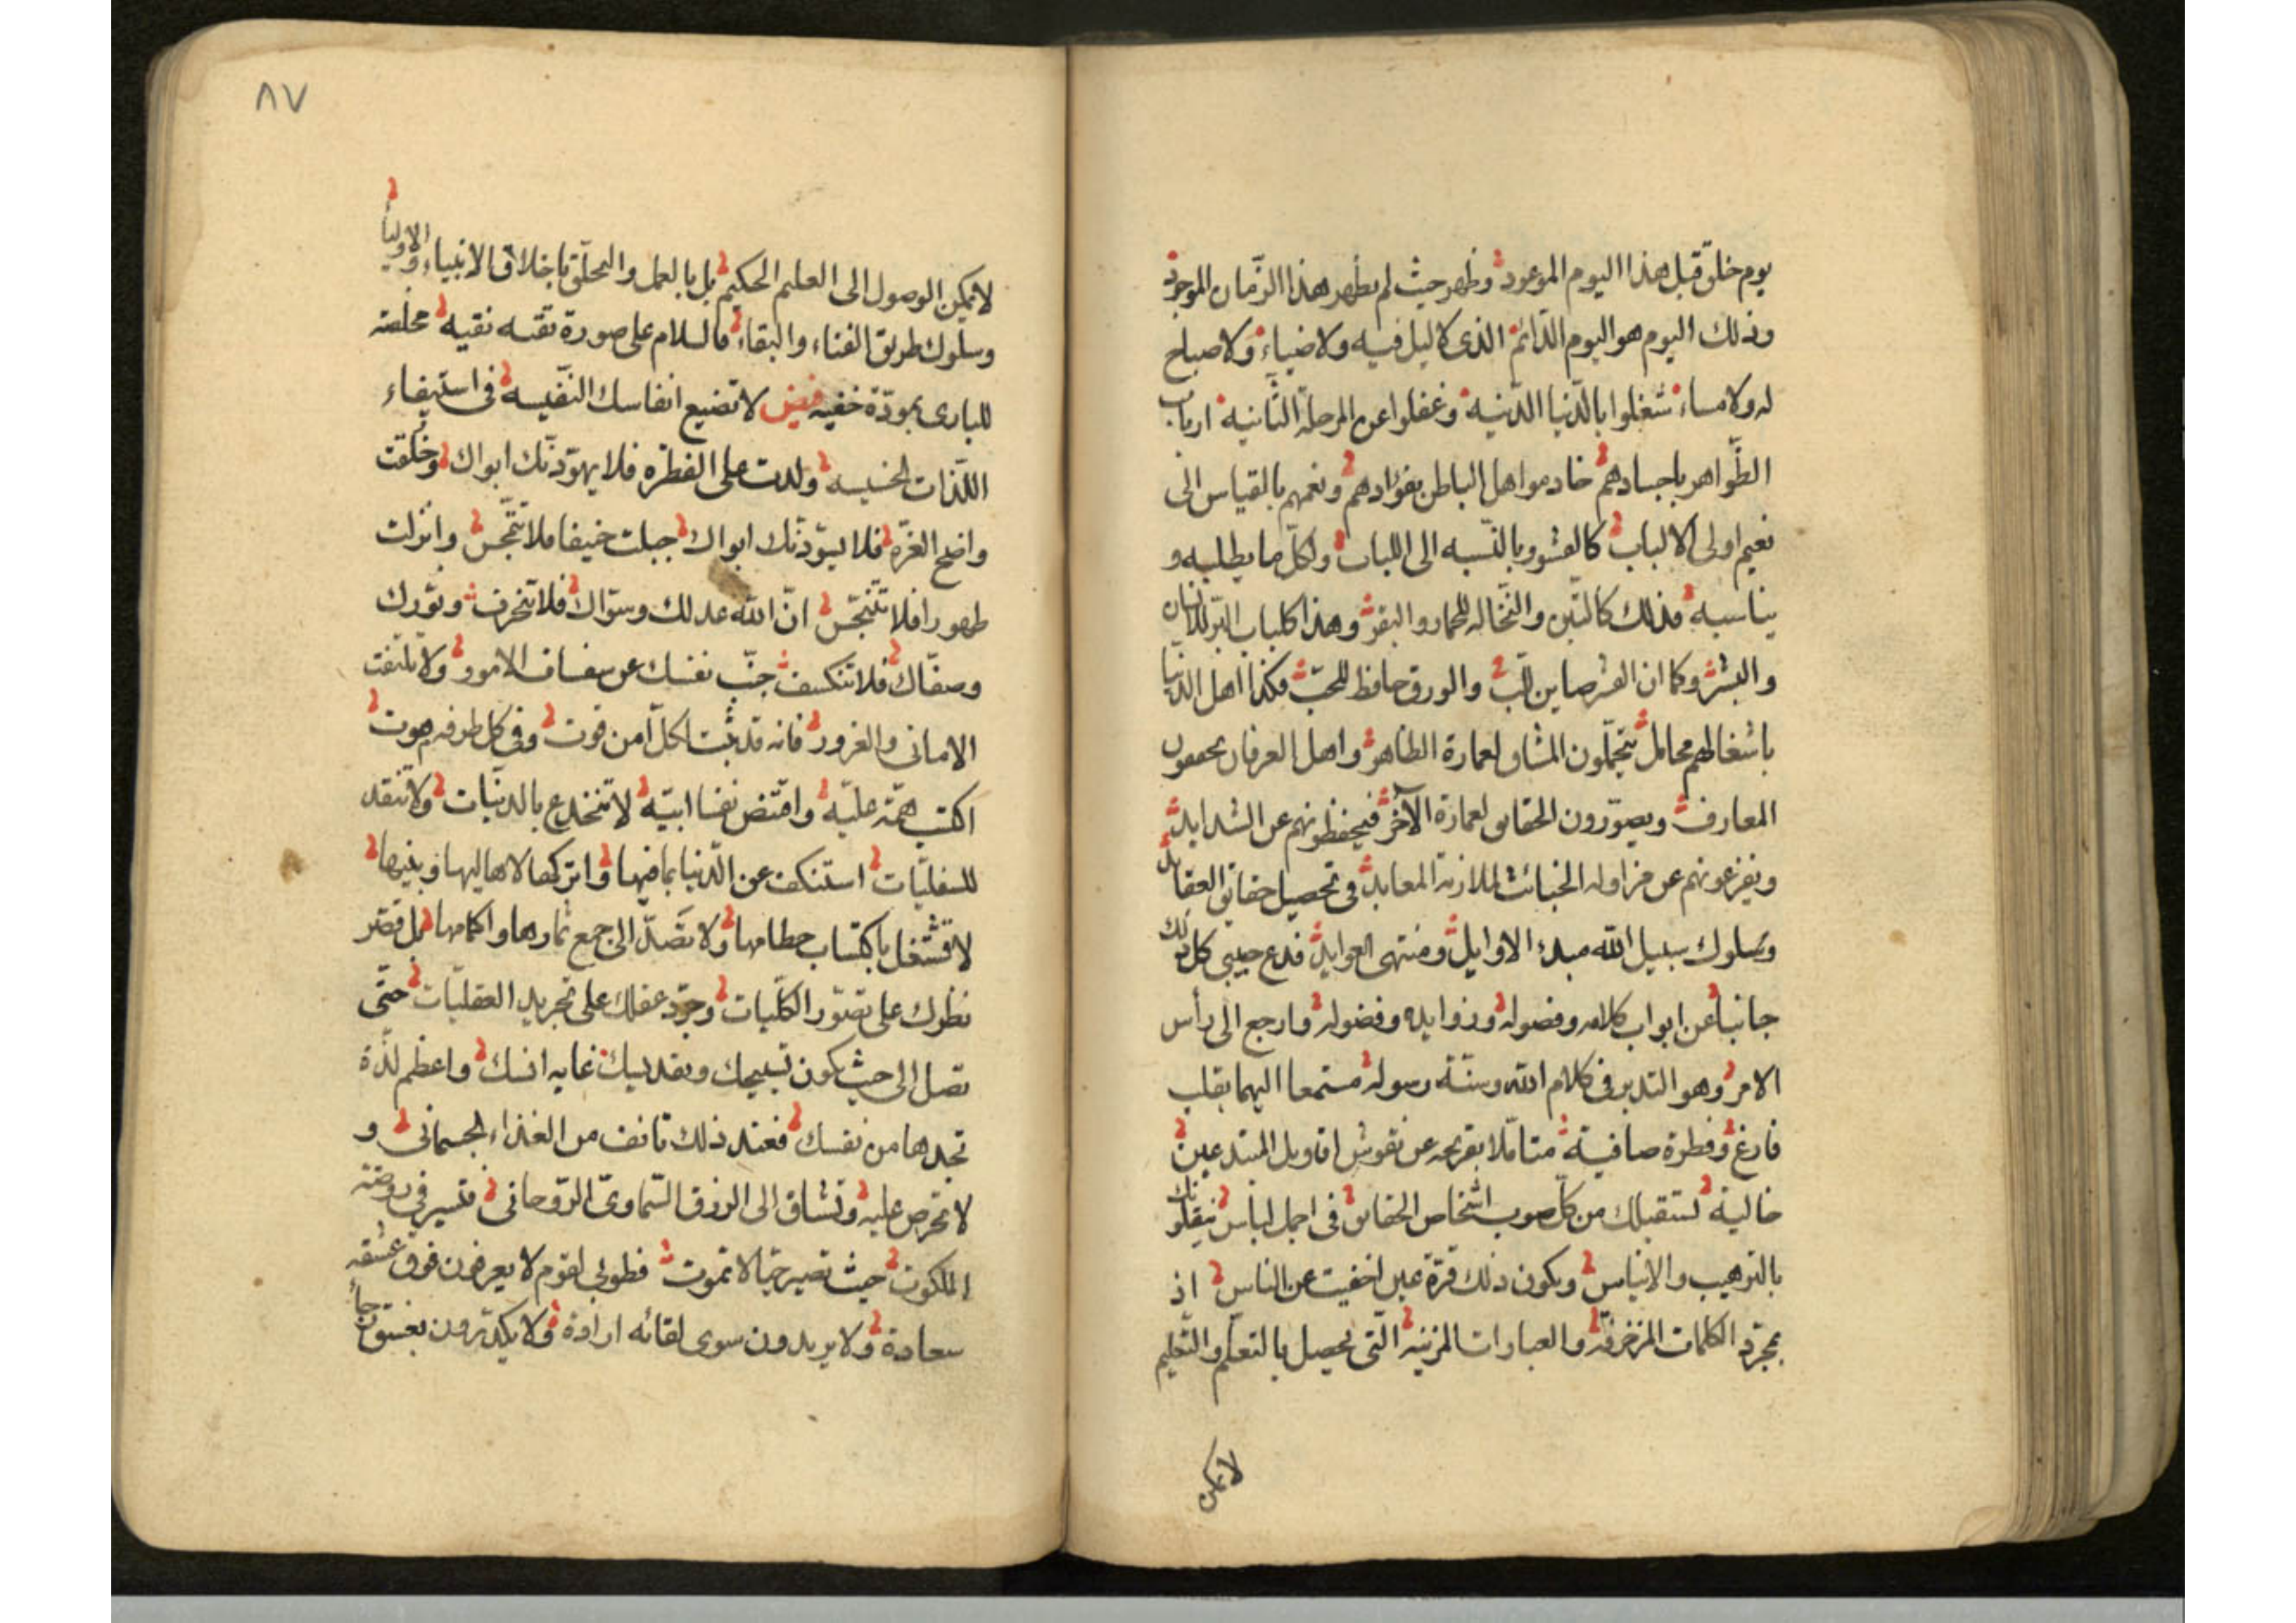 يوم خلق قبل هذا اليوم الموعود وظهر حيث لم يظهر هذا الزمان الموجود
وذلك اليوم هو اليوم الدّائم الذى لا ليل فيه ولا ضياء ولا صباح
له ولا مساء شغلوا بالدّنيا الدّنيه وغفلوا عن المرحلة الثّانية ارباب
الظّواهر باجسادهم خادموا اهل الباطن بفؤادهم ونعمهم بالقياس الى
نعيم اولى الالباب كالقشور بالنّسبه الى اللباب ولكلّ ما يطلبه و
يناسبه فذلك كالتّبن والنّخاله للحمار والبقر وهذا كلباب البرّ للانسان
والبشر وكما ان القشر صاين للّب والورق حافظ للحبّ فكذا اهل الدّنيا
باشغالهم محامل يتحمّلون المشاق لعمارة الظاهر واهل العرفان يحققون
المعارف ويصوّرون الحقايق لعمارة الآخر فيحفظونهم عن الشدايد
ويفزعونهم عن مزاوله الخبائث لملازمة المعابد فى تحصيل حقائق العقايد
وسلوك سبيل الله مبدء الاوايل ومنتهى العوايد فدع حبيبى كل ذلك
جانبا عن ابواب كلامه وفصوله وزوايده وفضوله وارجع الى رأس
الامر وهو التدبر فى كلام الله وسنّة رسوله مستمعا اليهما بقلب
فارغ وفطرة صافية متاملا بقريحه عن نقوش اقاويل المبتدعين
خالية تستقبلك من كلّ صوب اشخاص الحقايق فى اجمل لباس يتلقونك
بالترهيب والايناس ويكون ذلك قرّة عين اخفيت عن الناس اذ
بمجرّد الكلمات المزخرفة والعبارات المزيّنه الّتى يحصل بالتعلّم والتّعليم
لا يمكن
٨٧
لا يمكن الوصول الى العليم الحكيم بل بالعمل والتخلّق باخلاق الانبياء والاولياء
وسلوك طريق الفناء والبقاء فالسلام على صورة تقيه نقيه مخلصة
للبارى بمودّة خفيه فيض لا تضيع انفاسك النّفيسه فى استيفاء
اللّذات الخسيسه ولدت على الفطره فلا يهوّدنّك ابواك وخلقت
واضح الغرّه فلا يسوّدنّك ابواك جبلت حنيفا فلا تتمجّس وانزلت
طهورا فلا تتنجّس انّ الله عدلك وسوّاك فلا تنحرف ونوّرك
وصفّاك فلا تنكسف جنّب نفسك عن سفساف الامور ولا تلتفت
الامانى والغرور فانه قد يثبت لكلّ امن فوت وفى كل طرفه موت
اكتسب همّة عليّه واقتنص نفسا ابيّه لا تنخدع بالدنيّات ولا تنقد
للسفليّات استنكف عن الدّنيا بما فيها واتركها لاهاليها وبنيها
لا تشتغل باكتساب حطامها ولا تصّدّ الى جمع ثمارها واكمامها بل قصّر
نظرك على تصوّر الكلّيات وجرّد عقلك على تجريد العقليّات حتّى
تصل الى حيث يكون تسبيحك وتقديسك غايه انسك واعظم لذّة
تجدها من نفسك فعند ذلك تانف من الغذاء الجسمانى و
لا تحرص عليه وتشتاق الى الرزق السّماوىّ الرّوحانى فتسير فى روضة
الملكوت حيث تصير حيّا لا تموت فطوبى لقوم لا يعرفون فوق عشقه
سعادة ولا يريدون سوى لقائه ارادة ولا يكدّرون